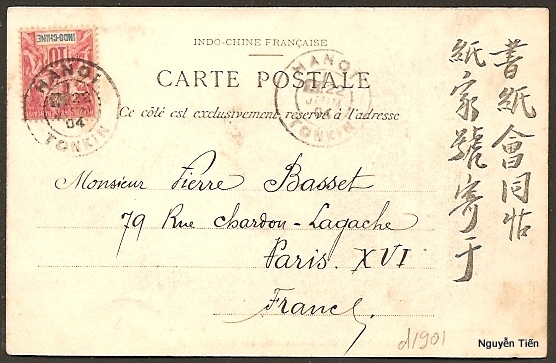 INDO-CHINE
10
HANOI
22
04
TONKIN
INDO-CHINE FRANÇAISE
CARTE POSTALE
Ce côté est exclusivement réservé à l'adresse
HANOI
22
JUIN
04
TONKIN
Monsieur Pierre Basset
79 Rue Chardon-Lagache
Paris. XVI
France
書紙會同
紙家號寄于
d1901
Nguyễn Tiến